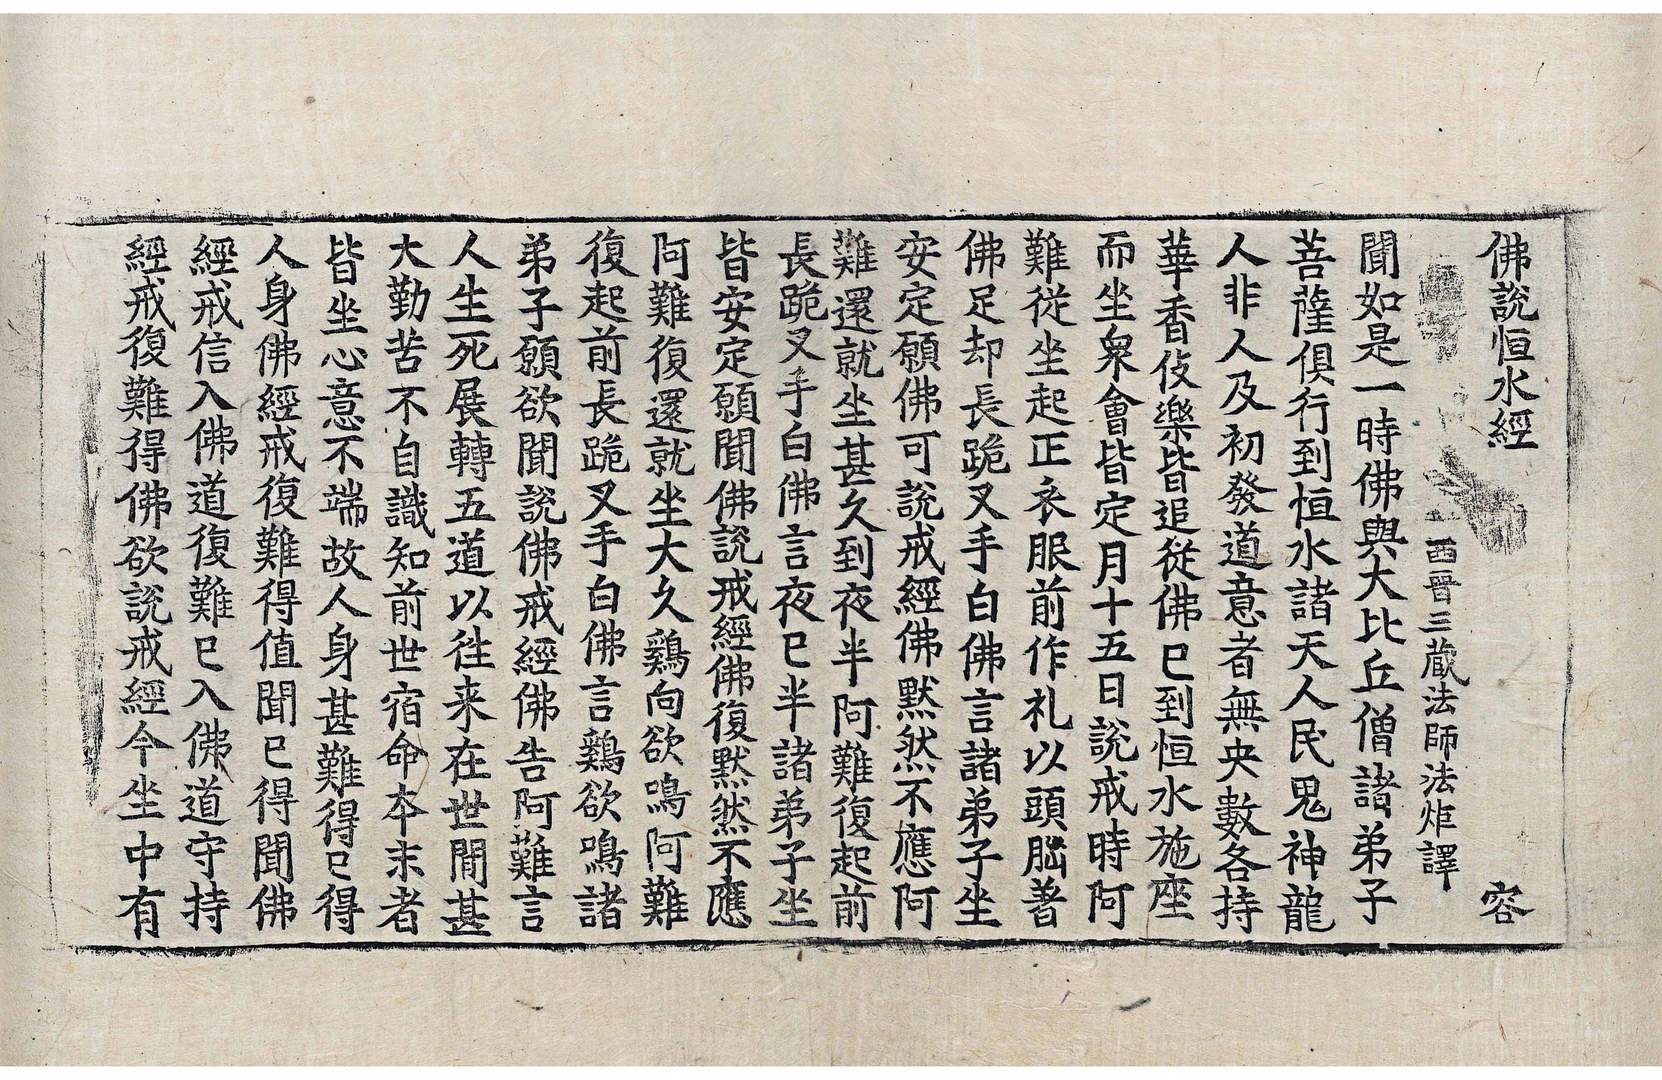 佛說恒水經 容
西晉三藏法師法炬譯
聞如是一時佛與大比丘僧諸弟子
菩薩俱行到恒水諸天人民鬼神龍
人非人及初發道意者無央數各持
華香伎樂皆追從佛已到恒水施座
而坐衆會皆定月十五日說戒時阿
難從坐起正衣服前作礼以頭腦著
佛足却長跪叉手白佛言諸弟子坐
安定願佛可說戒經佛默然不應阿
難還就坐甚久到夜半阿難復起前
長跪叉手白佛言夜已半諸弟子坐
皆安定願聞佛說戒經佛復默然不應
阿難復還就坐大久鷄向欲鳴阿難
復起前長跪叉手白佛言鷄欲鳴諸
弟子願欲聞說佛戒經佛告阿難言
人生死展轉五道以往来在世間甚
大勤苦不自識知前世宿命本末者
皆坐心意不端故人身甚難得已得
人身佛經戒復難得值聞已得聞佛
經戒信入佛道復難已入佛道守持
經戒復難得佛欲說戒經今坐中有